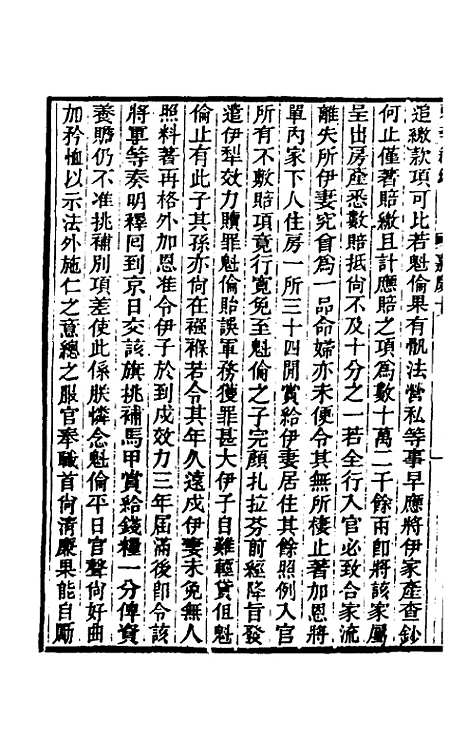 追繳款項可比若魁倫果有骫法營私等事早應將伊家產查鈔
何止僅著賠繳且計應賠之項爲數十萬二千餘兩卽將該家屬
呈出房產悉數賠抵尙不及十分之一若全行入官必致合家流
離失所伊妻究曾爲一品命婦亦未便令其無所棲止著加恩將
單內家下人住房一所三十四間賞給伊妻居住其餘照例入官
所有不敷賠項竟行寬免至魁倫之子完顏扎拉芬前經降旨發
遣伊犁效力贖罪魁倫貽誤軍務獲罪甚大伊子自難輕貸但魁
倫止有此子其孫亦尙在襁褓若令其年久遠戍伊妻未免無人
照料著再格外加恩准令伊子於到戍效力三年屆滿後卽令該
將軍等奏明釋回到京日交該旗挑補馬甲賞給錢糧一分俾資
養贍仍不准挑補別項差使此係朕憐念魁倫平日官聲尙好曲
加矜恤以示法外施仁之意總之服官奉職首尙淸廉果能自勵